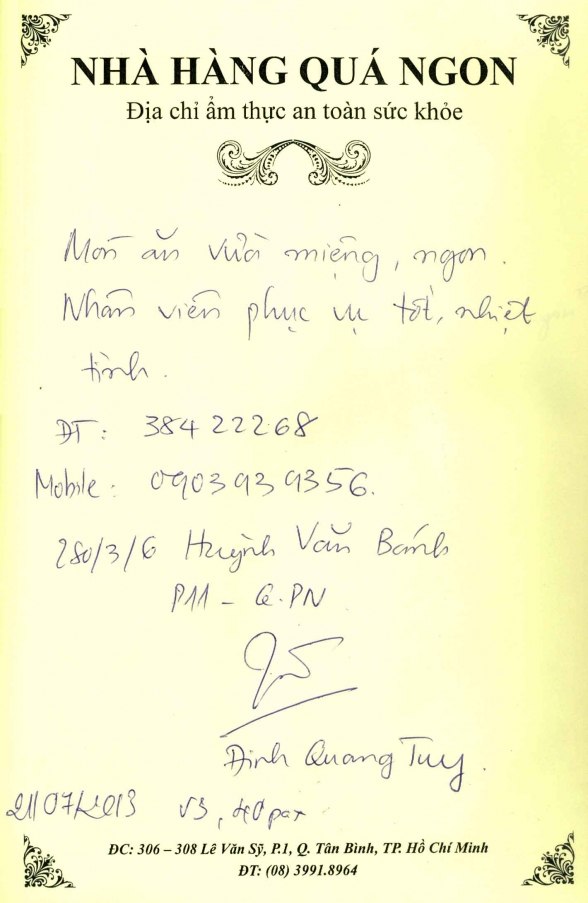 NHÀ HÀNG QUÁ NGON
Địa chỉ ẩm thực an toàn sức khỏe
Món ăn vừa miệng, ngon.
Nhân viên phục vụ tốt, nhiệt
tình.
ĐT: 38422268
Mobile: 0903939356.
280/3/6 Huỳnh Văn Bánh
P11 - Q.PN
Đinh Quang Tuy.
21/07/2013 V3, 40pax
ĐC: 306 – 308 Lê Văn Sỹ, P.1, Q. Tân Bình, TP. Hồ Chí Minh
ĐT: (08) 3991.8964